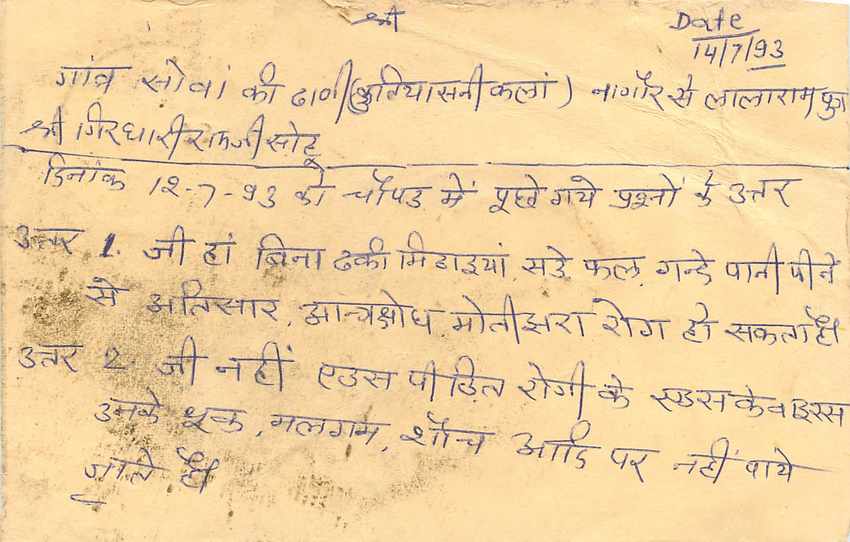 श्री
Date
14/7/93
गांव सोवां की ढाणी (कुतियासनी कलां) नागौर से लालाराम पुत्र
श्री गिरधारीरामजी सोटू
दिनांक 12-7-93 को चौपड में पूछे गये प्रश्नों के उत्तर
उत्तर 1. जी हां बिना ढकी मिठाइयां, सडे फल, गन्दे पानी पीने
से अतिसार, आन्त्रक्षोध, मोतीझरा रोग हो सकता है।
उत्तर 2. जी नहीं एडस पीडित रोगी के एडस के वाइरस
उनके थूक, मलगम, शौच आदि पर नहीं पाये
जाते है।